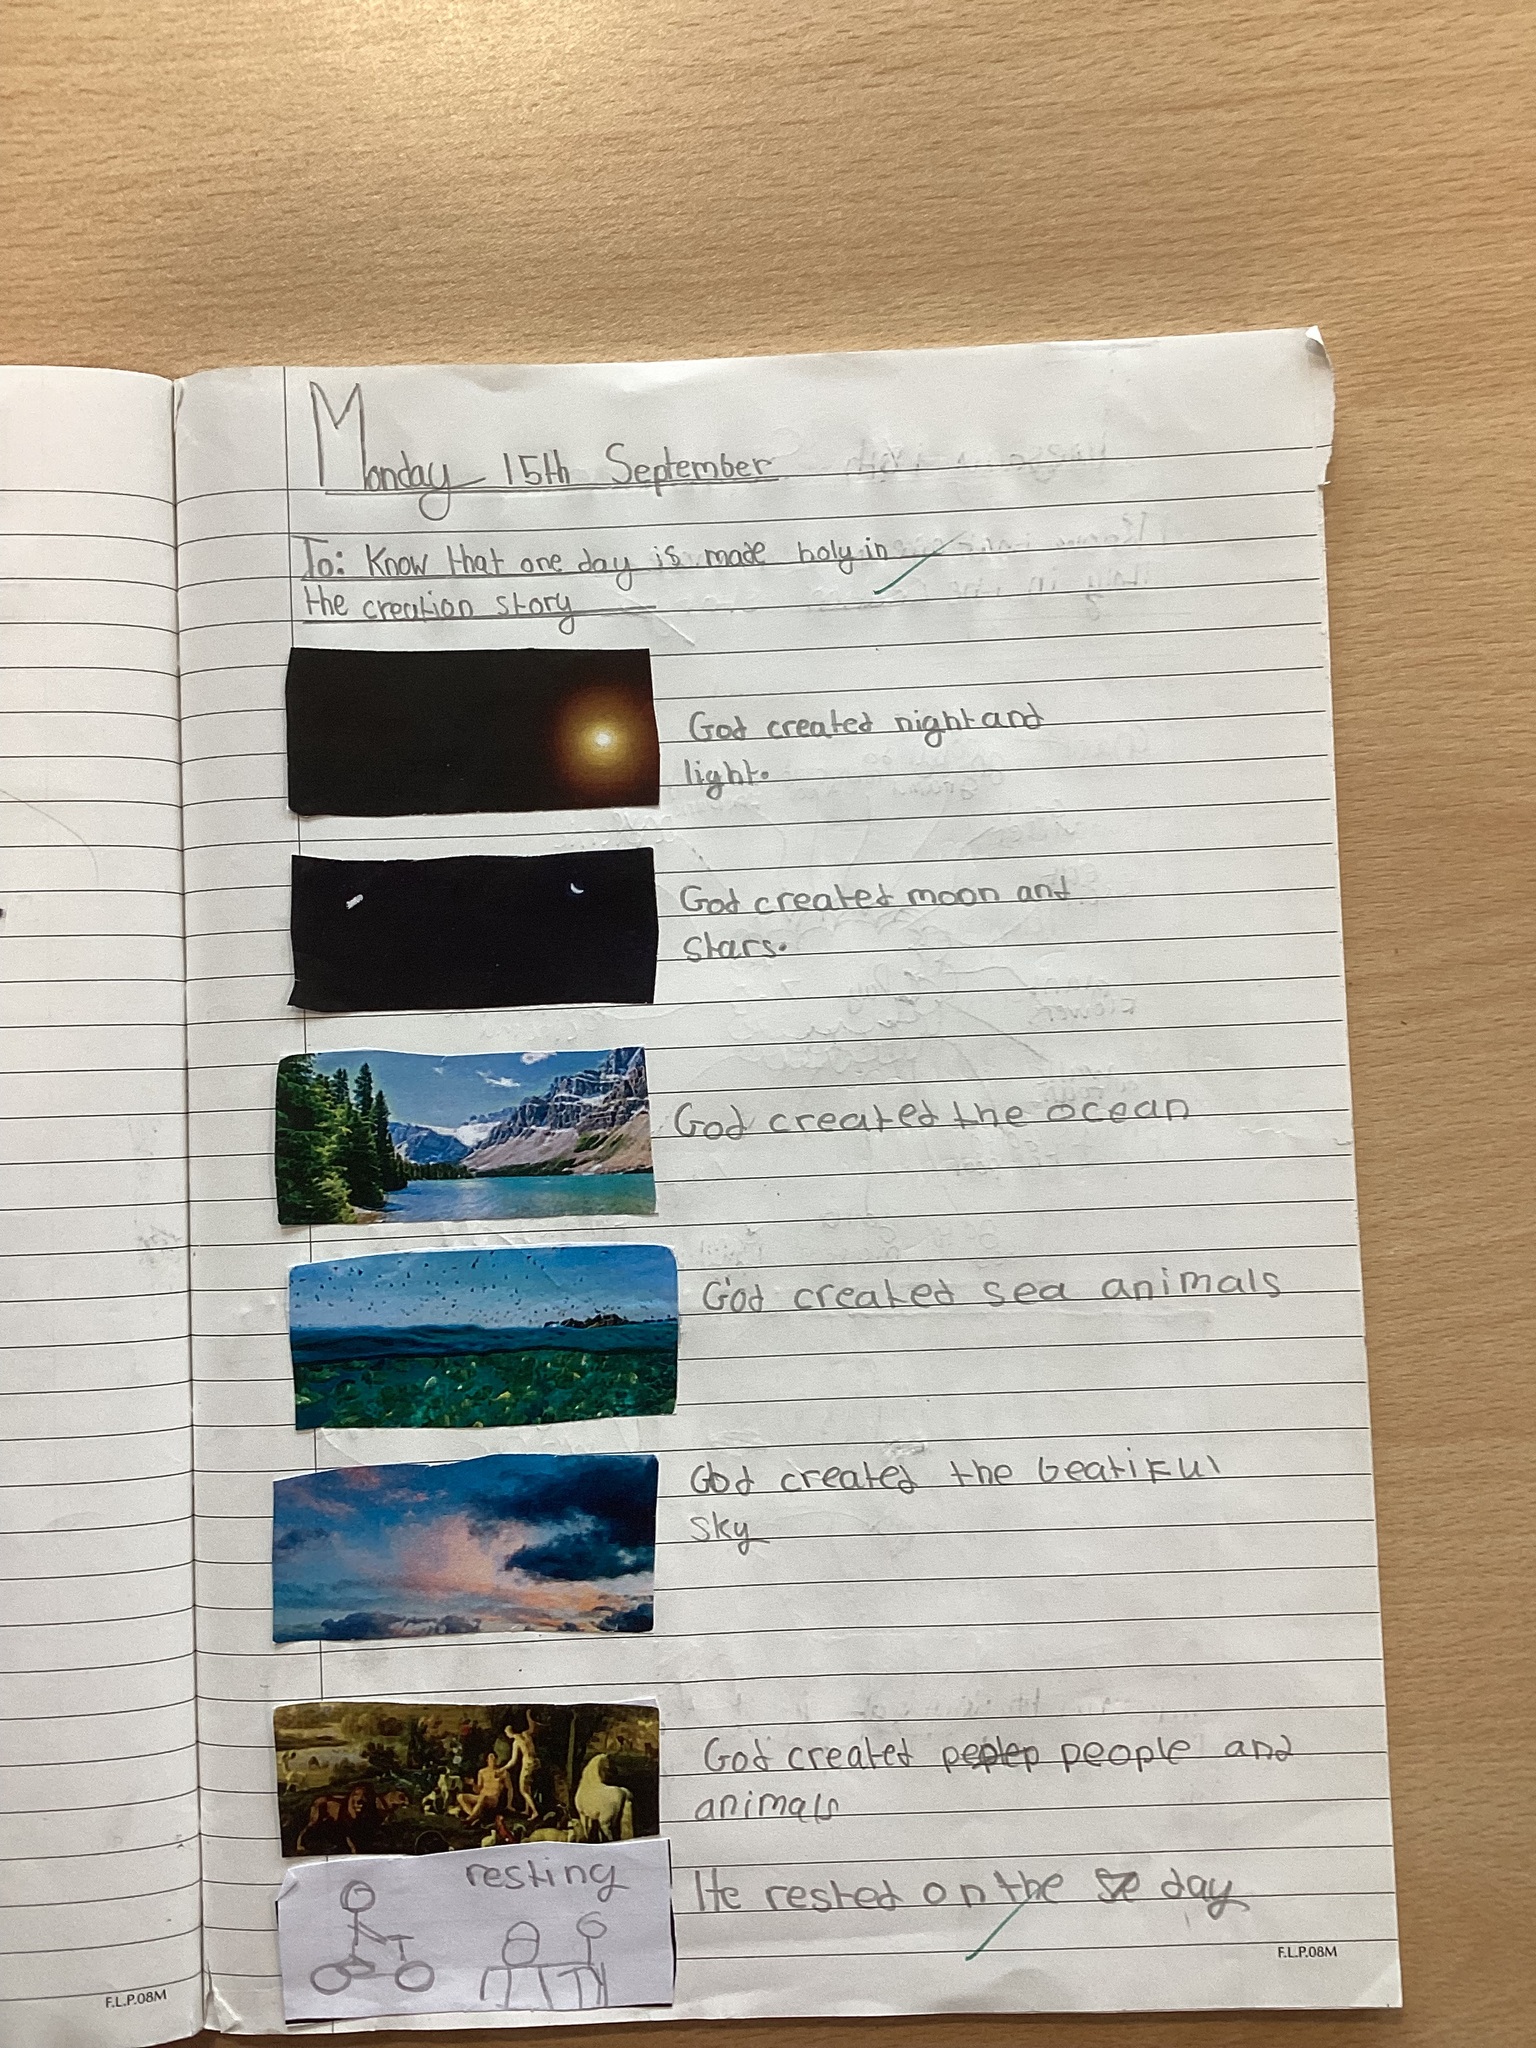 Monday 15th September
To: Know that one day is made holy in
the creation story
God created night and
light.
God created moon and
stars.
God created the ocean
God created sea animals
God created the beatiful
sky
God created people and
animals
resting
He rested on the day
F.L.P.08M
F.L.P.08M